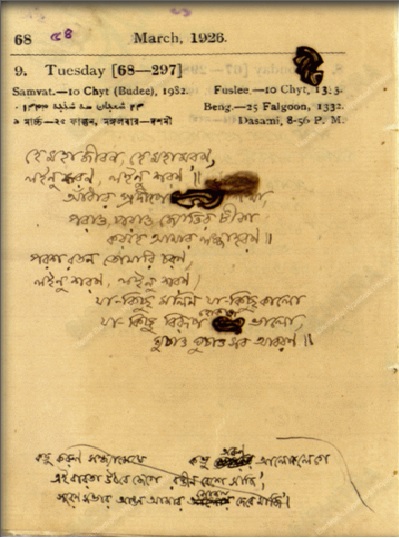 68 ৫৪ March, 1926.
9. Tuesday [68—297]
Samvat.—10 Chyt (Budee), 1982. Fuslee.—10 Chyt,
Beng.—25 Falgoon, 1332.
৯ মার্চ্চ—২৫ ফাল্গুন, মঙ্গলবার—দশমী Dasami, 8-56 P. M.
হে মহাজীবন, হে মহামরণ,
লইনু শরণ, লইনু শরণ ॥
আঁধার প্রদীপে
পরাও, পরাও জ্যোতির টীকা
করো হে আমার লজ্জাহরণ ॥
পরশ রতন তোমারি চরণ,
লইনু শরণ, লইনু শরণ,
যা-কিছু মলিন যা-কিছু কালো
যা-কিছু বিরূপ হোক তা ভালো,
ঘুচাও ঘুচাও সব আবরণ ॥
কভু করুণ সন্ধ্যামেঘে কভু তরুণ আলোক লেগে
এই বারতা উঠবে জেগে রঙীন বেশে সাজি,
স্মরণ সভার আসন আমার সোনায় দেবে মাজি ॥